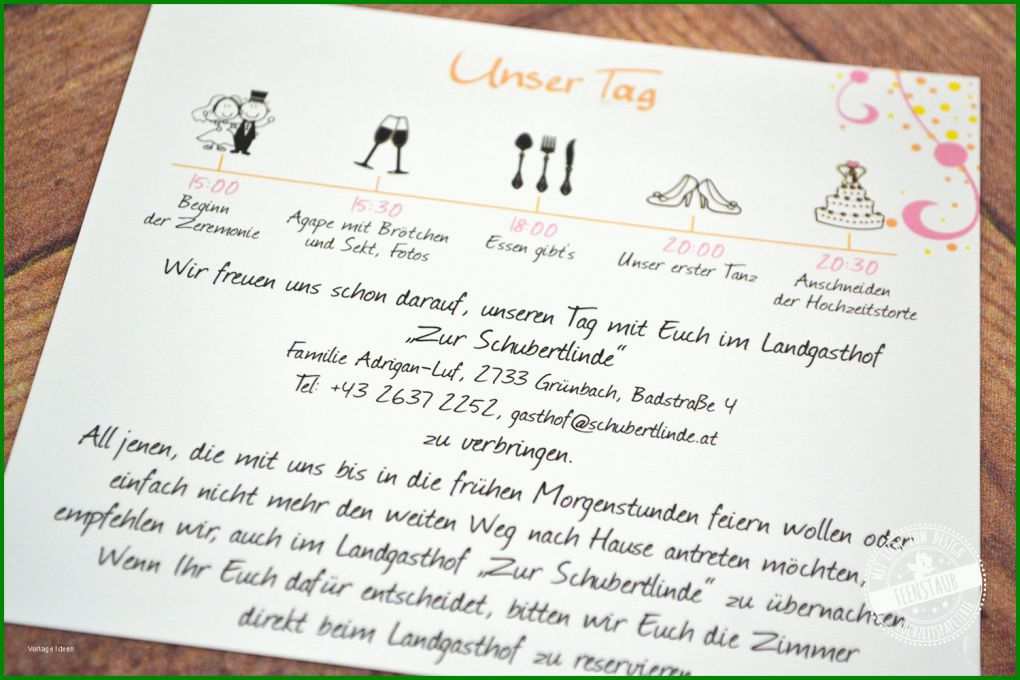 Unser Tag
15:00
Beginn
der Zeremonie
15:30
Agape mit Brötchen
und Sekt, Fotos
18:00
Essen gibt's
20:00
Unser erster Tanz
20:30
Anschneiden
der Hochzeitstorte
Wir freuen uns schon darauf, unseren Tag mit Euch im Landgasthof
„Zur Schubertlinde“
Familie Adrigan-Luf, 2733 Grünbach, Badstraße 4
Tel: +43 2637 2252, gasthof@schubertlinde.at
zu verbringen.
All jenen, die mit uns bis in die frühen Morgenstunden feiern wollen oder
einfach nicht mehr den weiten Weg nach Hause antreten möchten,
empfehlen wir, auch im Landgasthof „Zur Schubertlinde“ zu übernachten.
Wenn Ihr Euch dafür entscheidet, bitten wir Euch die Zimmer
direkt beim Landgasthof zu reservieren
FEENSTAUB
Vorlage Ideen